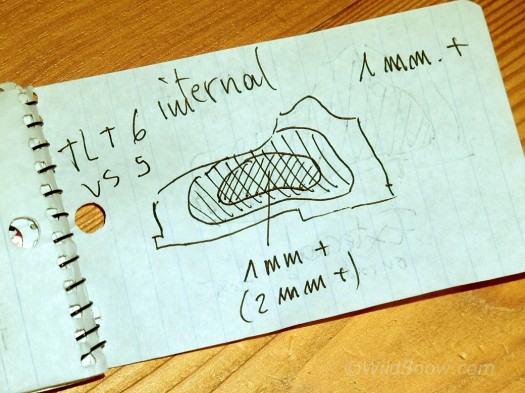 internal
1 mm. +
TL + 6
vs 5
1 mm +
(2 mm +)
©WildSnow.com